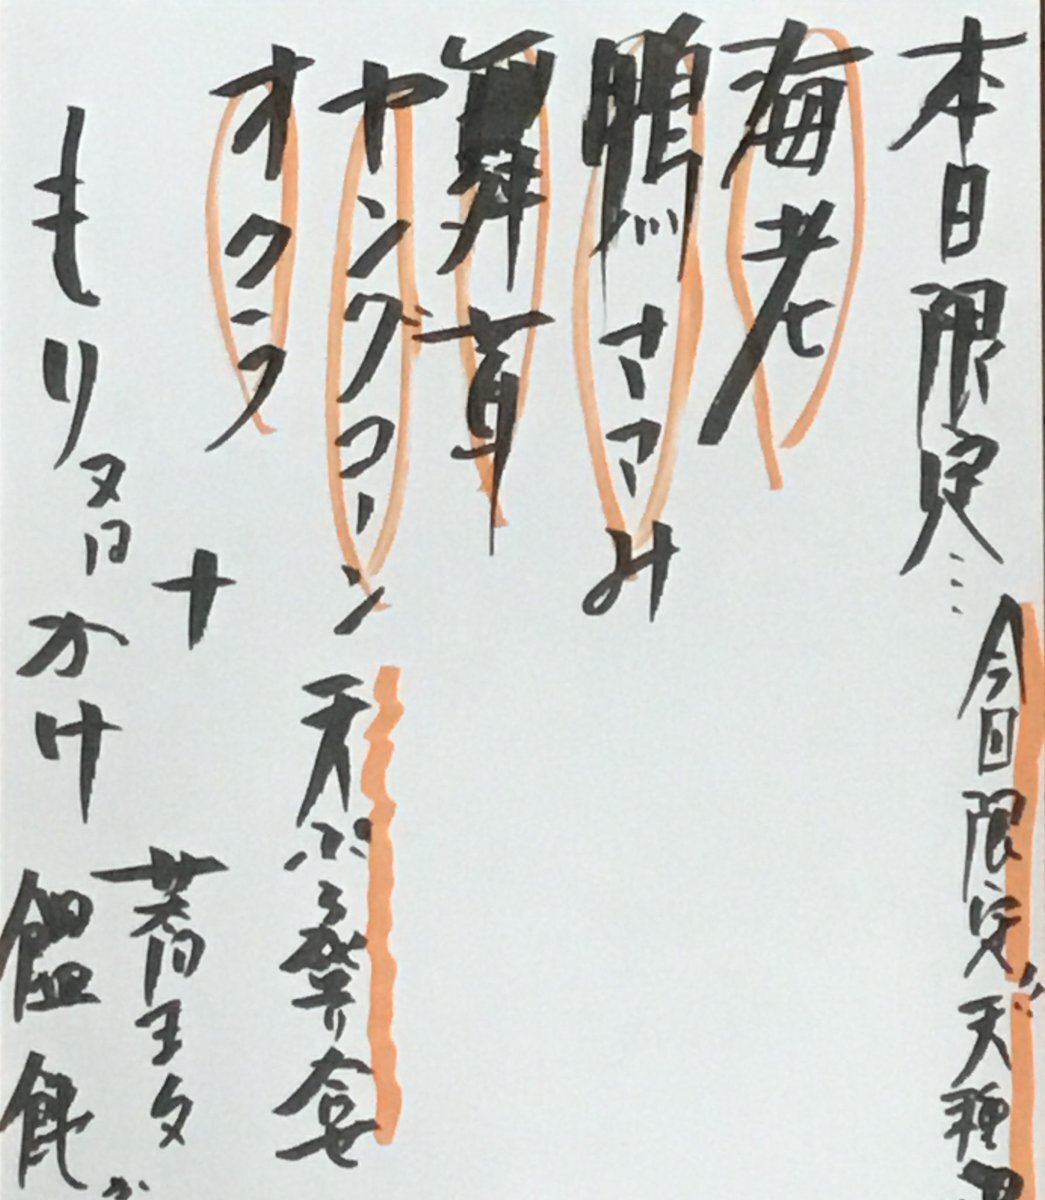 本日限定…
今回限定 天種
海老
鴨ささみ
舞茸
ヤングコーン
オクラ
天ぷら盛り合せ
+
もり又はかけ
蕎麦
饂飩